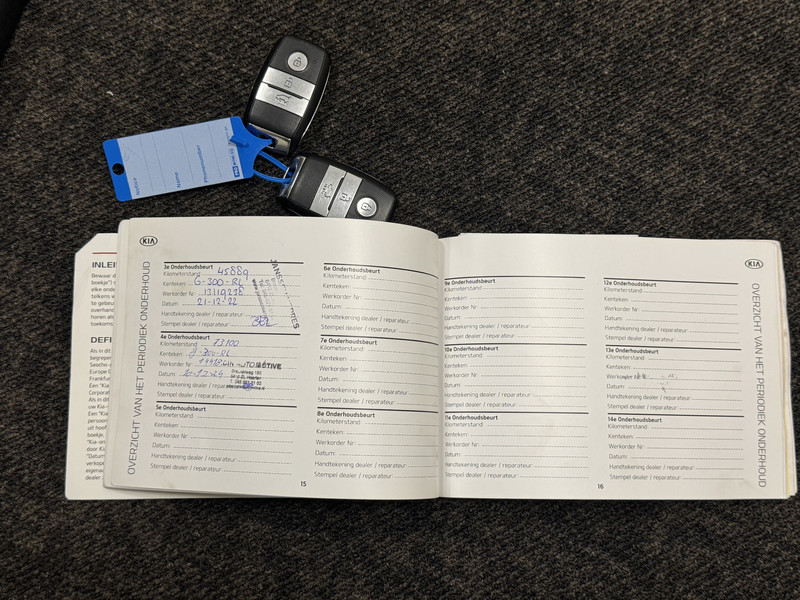 Notice
Name
Phonenumber
KIA
OVERZICHT VAN HET PERIODIEK ONDERHOUD
3e Onderhoudsbeurt
Kilometerstand 45889
Kenteken: G-300-RL
Werkorder Nr:
Datum: 21-12-22
Handtekening dealer / reparateur:
Stempel dealer / reparateur:
4e Onderhoudsbeurt
Kilometerstand: 73100
Kenteken: -300-RL
Werkorder Nr:
Datum:
Handtekening dealer / reparateur:
Stempel dealer / reparateur:
5e Onderhoudsbeurt
Kilometerstand:
Kenteken:
Werkorder Nr:
Datum:
Handtekening dealer / reparateur:
Stempel dealer / reparateur:
15
6e Onderhoudsbeurt
Kilometerstand:
Kenteken:
Werkorder Nr:
Datum:
Handtekening dealer / reparateur:
Stempel dealer / reparateur:
7e Onderhoudsbeurt
Kilometerstand:
Kenteken:
Werkorder Nr:
Datum:
Handtekening dealer / reparateur:
Stempel dealer / reparateur:
8e Onderhoudsbeurt
Kilometerstand:
Kenteken:
Werkorder Nr:
Datum:
Handtekening dealer / reparateur:
Stempel dealer / reparateur:
9e Onderhoudsbeurt
Kilometerstand:
Kenteken:
Werkorder Nr:
Datum:
Handtekening dealer / reparateur:
Stempel dealer / reparateur:
10e Onderhoudsbeurt
Kilometerstand:
Kenteken:
Werkorder Nr:
Datum:
Handtekening dealer / reparateur:
Stempel dealer / reparateur:
11e Onderhoudsbeurt
Kilometerstand:
Kenteken:
Werkorder Nr:
Datum:
Handtekening dealer / reparateur:
Stempel dealer / reparateur:
12e Onderhoudsbeurt
Kilometerstand:
Kenteken:
Werkorder Nr:
Datum:
Handtekening dealer / reparateur:
Stempel dealer / reparateur:
13e Onderhoudsbeurt
Kilometerstand:
Kenteken:
Werkorder Nr:
Datum:
Handtekening dealer / reparateur:
Stempel dealer / reparateur:
14e Onderhoudsbeurt
Kilometerstand:
Kenteken:
Werkorder Nr:
Datum:
Handtekening dealer / reparateur:
Stempel dealer / reparateur:
16
KIA
OVERZICHT VAN HET PERIODIEK ONDERHOUD